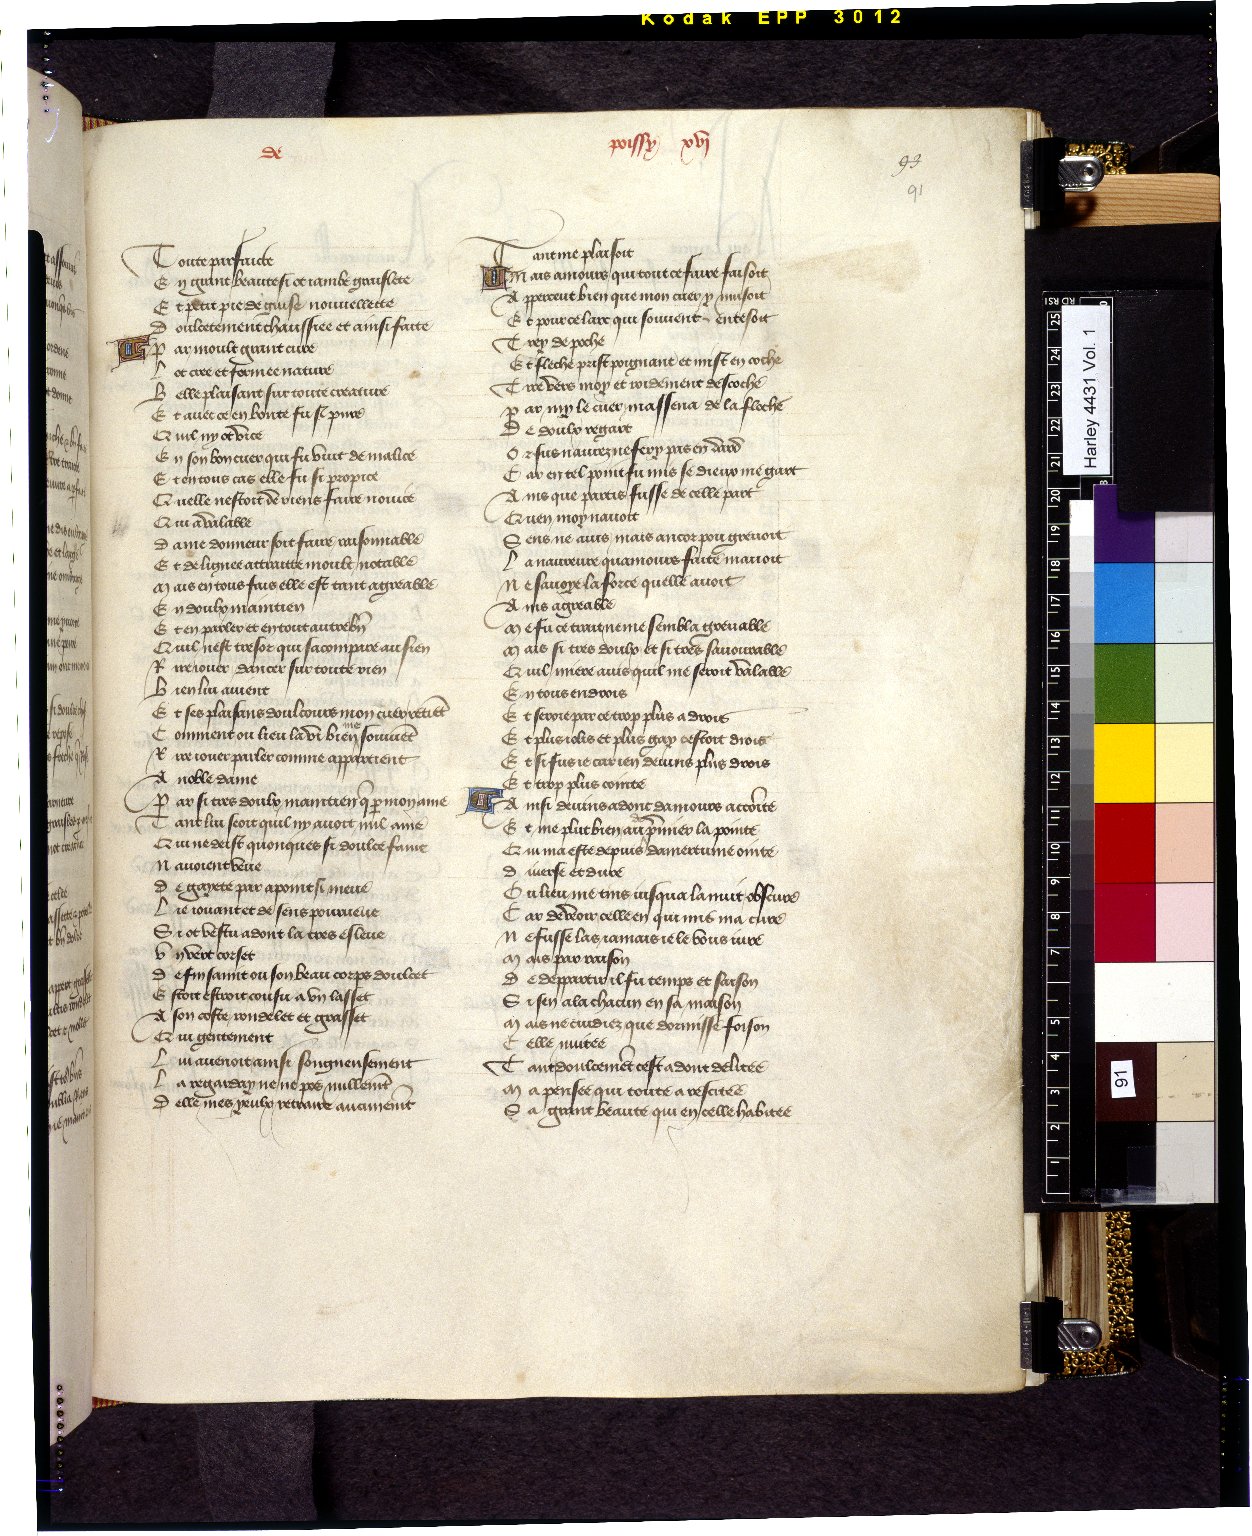 Kodak EPP 3012
de
poissy xvj
93
91
Toute parfaicte
En grant beaute si ot iambe grassete
Et petit pie de guise nouuellette
Doulcetement chaussiee et ainsi faite
Par moult grant cure
Lot cree et formee nature
Belle plaisant sur toute creature
Et auec ce en bonte fu si pure
Quil ny ot vice
En son bon cuer qui fu vuit de malice
Et en tous cas elle fu si propice
Quelle nestoit de riens faire nouice
Qui a valable
Dame donneur soit faire raisonnable
Et de lignee attraitte moult notable
Mais en tous fais elle est tant agreable
En doulx maintien
Et en parler et en tout autre bn
Quil nest tresor qui sacompare au sien
Rire iouer dancer sur toute rien
Bien lui auient
Et ses plaisans doulcours mon cuer retiet
Comment ou lieu la vi bien me souuiet
Rire iouer parler comme appartient
A noble dame
Par si tres doulx maintien q p mon ame
Tant lui seoit quil ny auoit nul ame
Qui ne deist quonques si doulce fame
Nauoient veue
De gayete par apoint si meue
Lie iouant et de sens pourueue
Si ot vestu adont la tres esleue
Vn vert corset
De fin samit ou son beau corps doulcet
Estoit estroit cousu a vn lasset
A son coste rondelet et grasset
Qui gentement
Lui auenoit ainsi songneusement
La regarday ne ne pos nullemt
Delle mes yeulx retraire aucunemt
Tant me plaisoit
Mais amours qui tout ce faire faisoit
Apperceut bien que mon cuer y musoit
Et pour ce larc qui souuent entesoit
Trey de poche
Et fleche prist poignant et mist en coche
Tire vers moy et roidement descoche
Par my le cuer massena de la fleche
De doulx regart
Or fus naurez ne fery pas en dard
Car en tel point fu mis se dieux me gart
Ains que partis fusse de celle part
Quen moy nauoit
Sens ne auis mais ancor pou greuoit
La naureure quamours faite mauoit
Ne sauoye la force quelle auoit
Ains agreable
Me fu ce trait ne me sembla greuable
Mais si tres doulx et si tres sauourable
Quil miere auis quil me seroit valable
En tous endrois
Et seroie par ce trop plus a drois
Et plus iolis et plus gay cestoit drois
Et si fus ie car ien deuins plus drois
Et trop plus cointe
Ainsi deuins adont damours accoite
Et me plut bien au pmier la pointe
Qui ma este depuis damertume ointe
Diuerse et dure
Ou lieu me tins iusqua la nuit obscure
Car de veoir celle en qui mis ma cure
Ne fusse las iamais ie le vous iure
Mais par raison
De departir il fu temps et saison
Si sen ala chacun en sa maison
Mais ne cuidiez que dormisse foison
Celle nuitee
Tant doulcemet cest adont delitee
Ma pensee qui toute a rescitee
Sa grant beaute qui en celle habitee
Harley 4431 Vol. 1
91